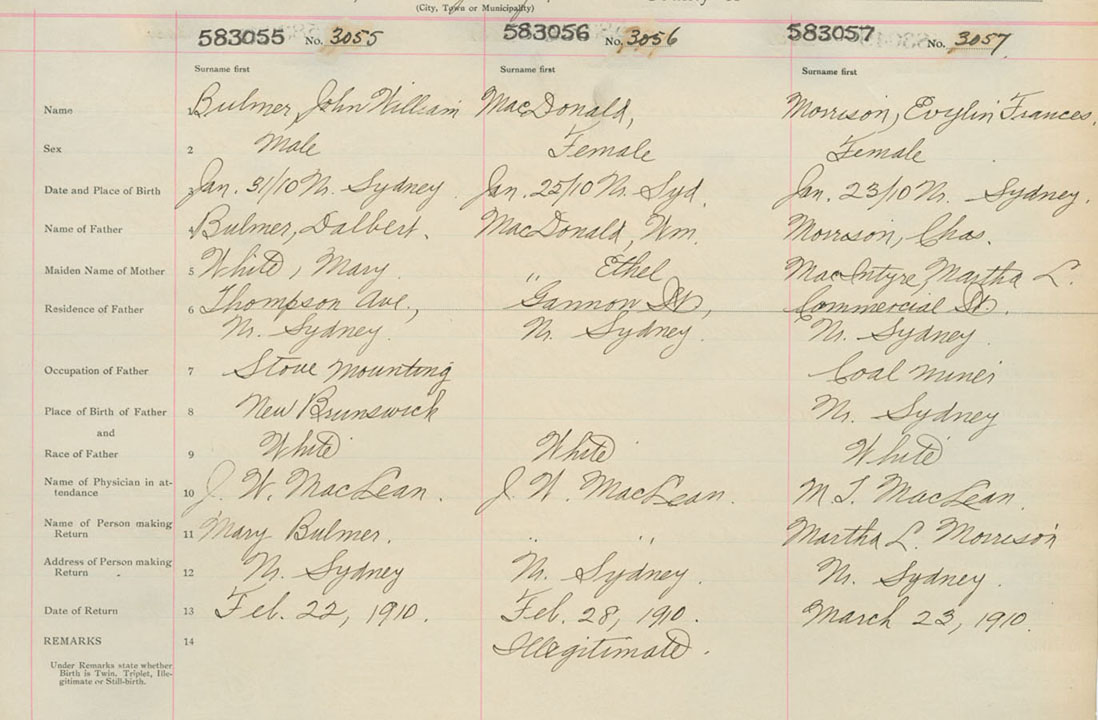 (City, Town or Municipality)
583055 No. 3055 583056 No. 3056 583057 No. 3057
Surname first Surname first Surname first
Name 1 Bulmer, John William MacDonald, Morrison, Evylin Frances.
Sex 2 Male Female Female
Date and Place of Birth 3 Jan. 31/10 N. Sydney Jan. 25/10 N. Syd. Jan. 23/10 N. Sydney.
Name of Father 4 Bulmer, Dalbert. MacDonald, Wm. Morrison, Chas.
Maiden Name of Mother 5 White, Mary. " Ethel MacIntyre, Martha L.
Residence of Father 6 Thompson Ave., Gannon St, Commercial St.
N. Sydney. N. Sydney. N. Sydney.
Occupation of Father 7 Stove Mounting Coal Miner
Place of Birth of Father 8 New Brunswick N. Sydney
and
Race of Father 9 White White White
Name of Physician in at- 10 J. W. MacLean. J. W. MacLean. M. T. MacLean.
tendance
Name of Person making 11 Mary Bulmer. " " Martha L. Morrison
Return
Address of Person making 12 N. Sydney N. Sydney. N. Sydney.
Return
Date of Return 13 Feb. 22, 1910. Feb. 28, 1910. March 23, 1910.
REMARKS 14 Illegitimate.
Under Remarks state whether
Birth is Twin. Triplet, Ille-
gitimate or Still-birth.